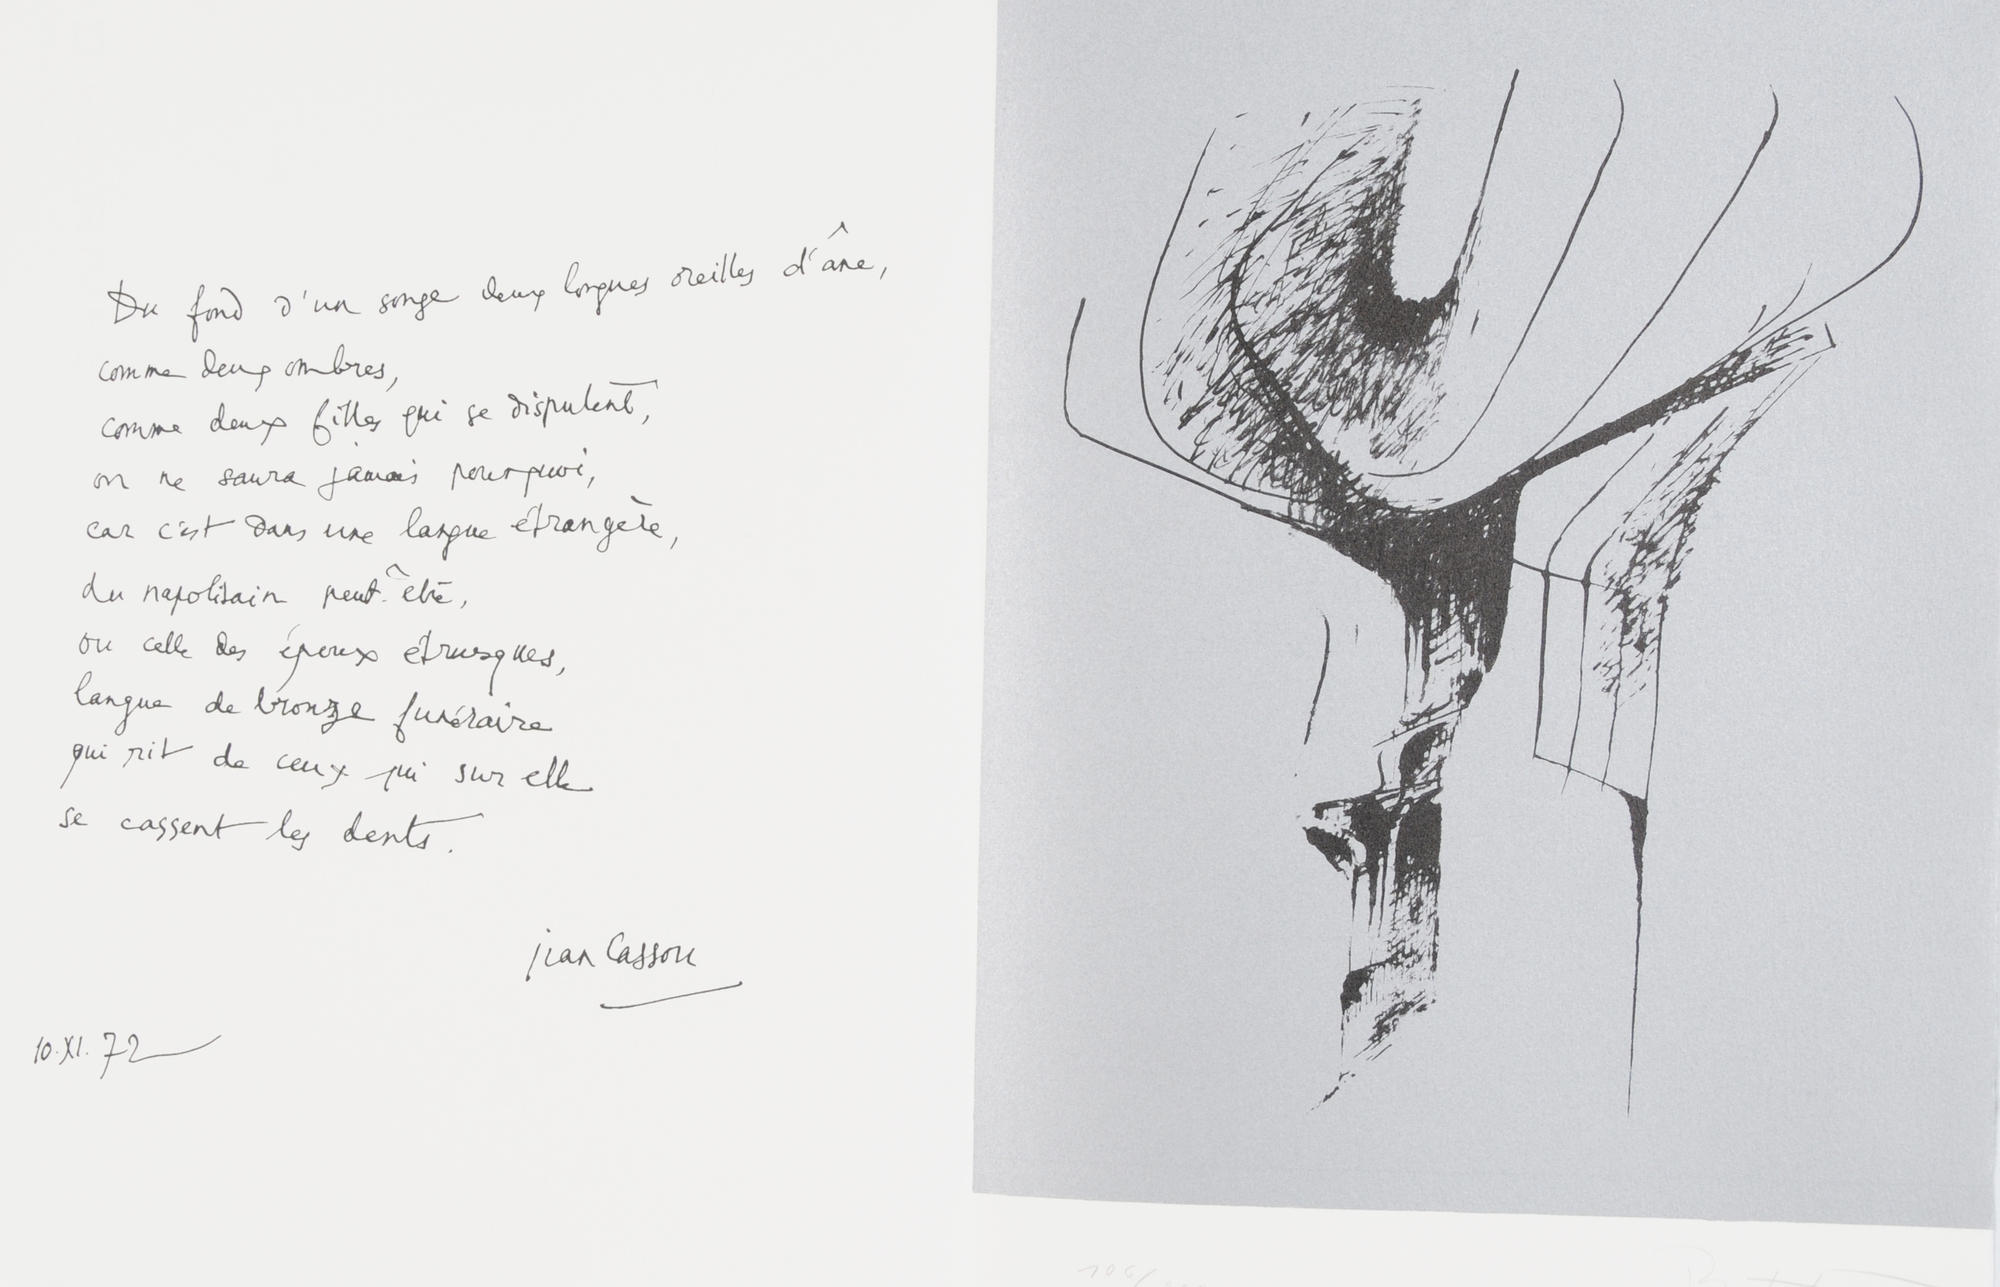 Du fond d'un songe deux longues oreilles d'âne,
comme deux ombres,
comme deux filles qui se disputent,
on ne saura jamais pourquoi,
car c'est dans une langue étrangère,
du napolitain peut-être,
ou celle des époux étrusques,
langue de bronze funéraire
qui rit de ceux qui sur elle
se cassent les dents.
jean Cassou
10.XI.72
106/